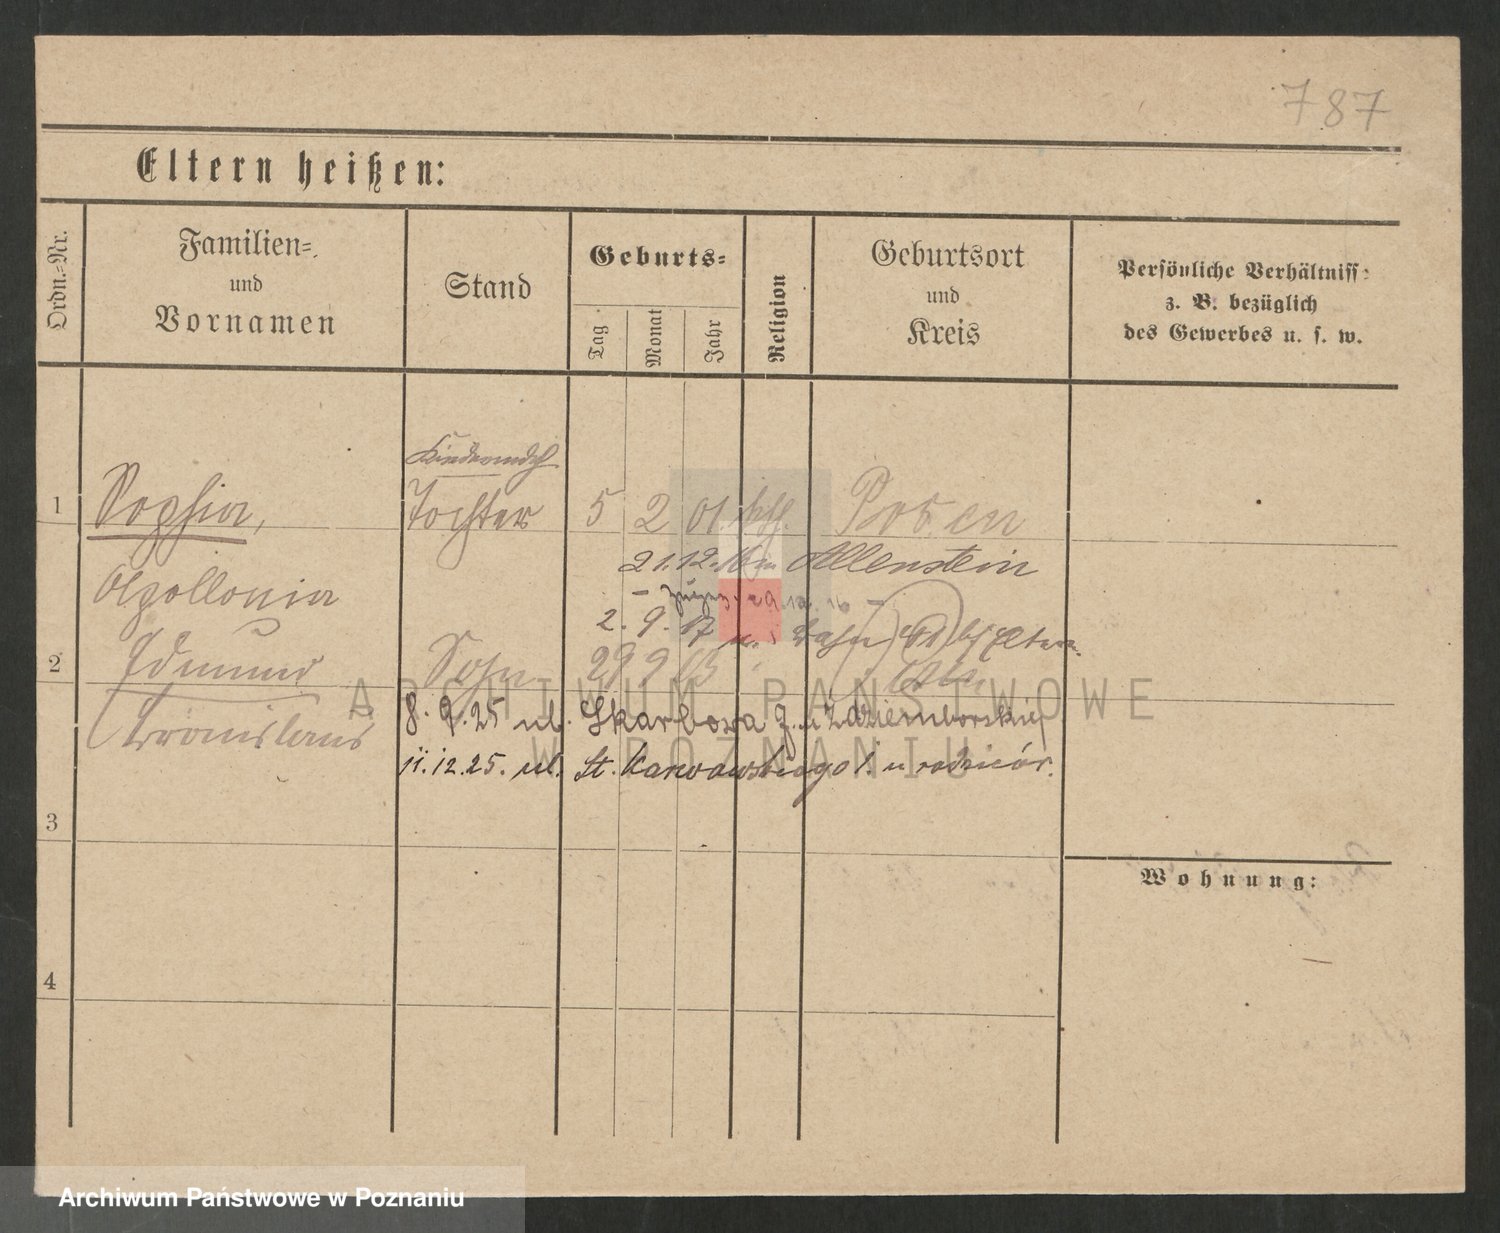 787
Eltern heißen:
Ordn.=Nr.
Familien=
und
Vornamen
Stand
Geburts=
Tag
Monat
Jahr
Religion
Geburtsort
und
Kreis
Persönliche Verhältniss
z. B. bezüglich
des Gewerbes u. s. w.
1 Sophia, Tochter 5 2 01 kth. Posen
21.12.16 Allenstein
Apollonia
2. 9. 17
2 Edmund Sohn 29 9 03
Bronislaus
8. 9. 25 ul. Skarbowa 9. u Zdziemborskiej
11.12.25. ul. St. Karwowskiego 1. u rodziców.
3
Wohnung:
4
ARCHIWUM PAŃSTWOWE
W POZNANIU
Archiwum Państwowe w Poznaniu